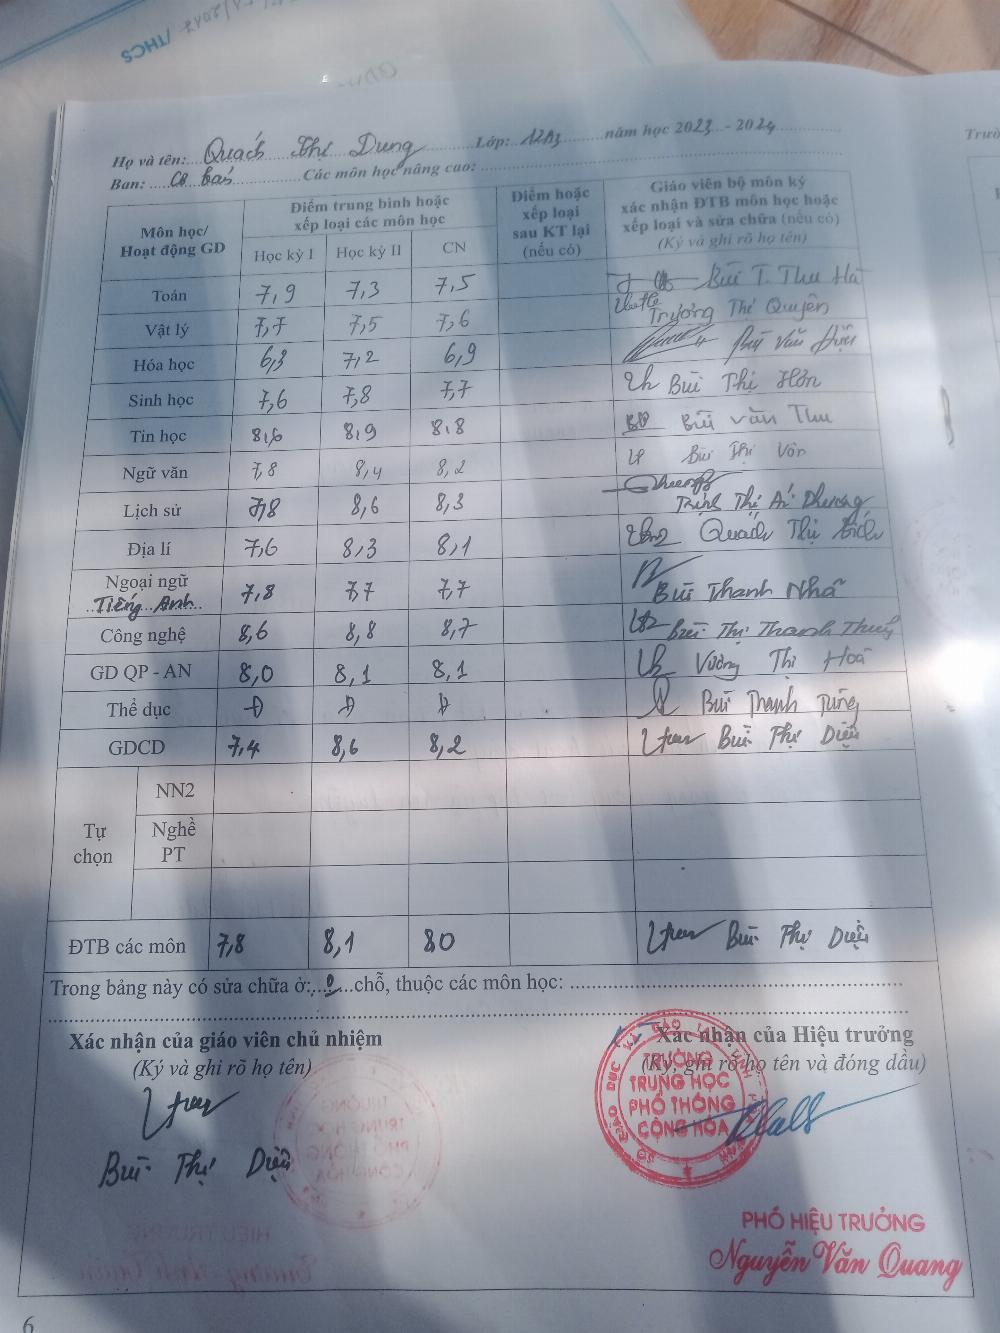 /THCS
Họ và tên: Quách Thị Dung Lớp: 12A3 năm học 2023 - 2024
Ban: Cơ bản Các môn học nâng cao:
Trườ
Môn học/
Hoạt động GD
Điểm trung bình hoặc
xếp loại các môn học
Học kỳ I Học kỳ II CN
Điểm hoặc
xếp loại
sau KT lại
(nếu có)
Giáo viên bộ môn ký
xác nhận ĐTB môn học hoặc
xếp loại và sửa chữa (nếu có)
(Ký và ghi rõ họ tên)
Toán 7,9 7,3 7,5 Bùi T. Thu Hà
Vật lý 7,7 7,5 7,6 Trương Thị Quyên
Hóa học 6,3 7,2 6,9 Bùi Văn
Sinh học 7,6 7,8 7,7 Bùi Thị
Tin học 8,6 8,9 8,8 Bùi Văn Thu
Ngữ văn 7,8 8,4 8,2 Bùi Thị Vân
Lịch sử 7,8 8,6 8,3 Trịnh Thị Phương
Địa lí 7,6 8,3 8,1 Quách Thị Bích
Ngoại ngữ
Tiếng Anh 7,8 7,7 7,7 Bùi Thanh Nhã
Công nghệ 8,6 8,8 8,7 Bùi Thị Thanh Thuý
GD QP - AN 8,0 8,1 8,1 Vương Thị Hoa
Thể dục Đ Đ Đ Bùi Thanh Tùng
GDCD 7,4 8,6 8,2 Bùi Thị Diệu
Tự
chọn
NN2
Nghề
PT
ĐTB các môn 7,8 8,1 8,0 Bùi Thị Diệu
Trong bảng này có sửa chữa ở: 0 chỗ, thuộc các môn học:
Xác nhận của giáo viên chủ nhiệm
(Ký và ghi rõ họ tên)
Bùi Thị Diệu
Xác nhận của Hiệu trưởng
(Ký, ghi rõ họ tên và đóng dấu)
TRƯỜNG
TRUNG HỌC
PHỔ THÔNG
CỘNG HÒA
PHÓ HIỆU TRƯỞNG
Nguyễn Văn Quang
6